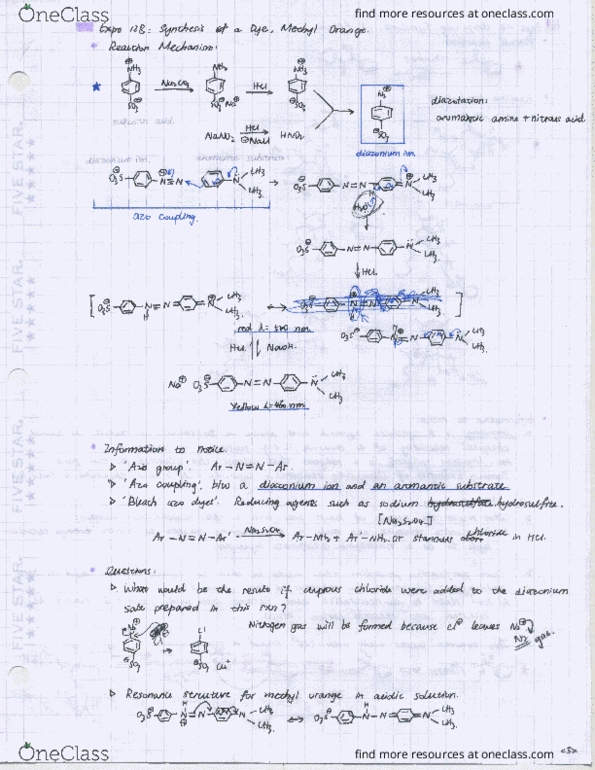 OneClass
find more resources at oneclass.com
Expo 12B: Synthesis of a Dye, Methyl Orange.
Reaction Mechanism:
NH₃ Na₂CO₃ NH₂ HCl NH₃ N₂
SO₃ SO₃ Na SO₃ SO₃
diazotation:
aromatic amine + nitrous acid.
sulfanilic acid.
NaNO₂ HCl HNO₂
NaCl
diazonium ion.
diazonium ion. aromatic substrate
O₃S N≡N N CH₃ CH₃ O₃S N=N N CH₃ CH₃
azo coupling. H₂O
O₃S N=N N CH₃ CH₃
HCl
O₃S N-N N CH₃ CH₃
H
red λ = 520 nm
O₃S N=N N CH₃ CH₃
HCl NaOH.
Na O₃S N=N N CH₃ CH₃
Yellow λ=460 nm
Information to Notice
'Azo group'. Ar-N=N-Ar
'Azo coupling'. b/w a diazonium ion and an aromantic substrate
'Bleach azo dyes'. Reducing agents such as sodium hydrosulfite.
[Na₂S₂O₄]
Ar-N=N-Ar' Na₂S₂O₄ Ar-NH₂ + Ar'-NH₂ or stannous chloride in HCl.
Questions:
What would be the results if cuprous chloride were added to the diazonium
salt prepared in this rxn?
Nitrogen gas will be formed because Cl leaves N₂
N₂ gas.
Cl
SO₃ SO₃ Cu⁺
Resonance structure for methyl orange in acidic solution.
O₃S N=N N CH₃ CH₃ O₃S N-N N CH₃ CH₃
H H
FIVE STAR.
FIVE STAR.
FIVE STAR.
FIVE STAR.
OneClass
find more resources at oneclass.com